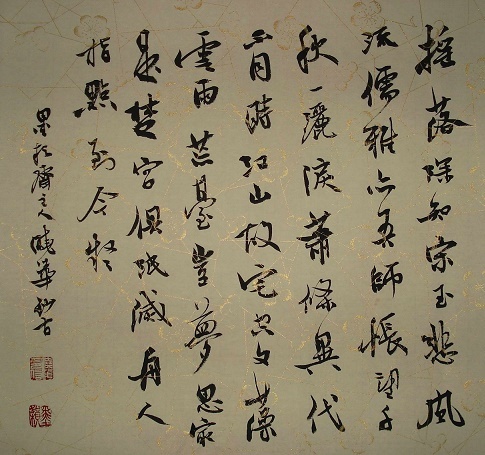 搖落深知宋玉悲風
流儒雅亦吾師悵望千
秋一灑淚蕭條異代
不同時江山故宅空文藻
雲雨荒臺豈夢思最
是楚宮俱泯滅舟人
指點到今疑
齋主人華